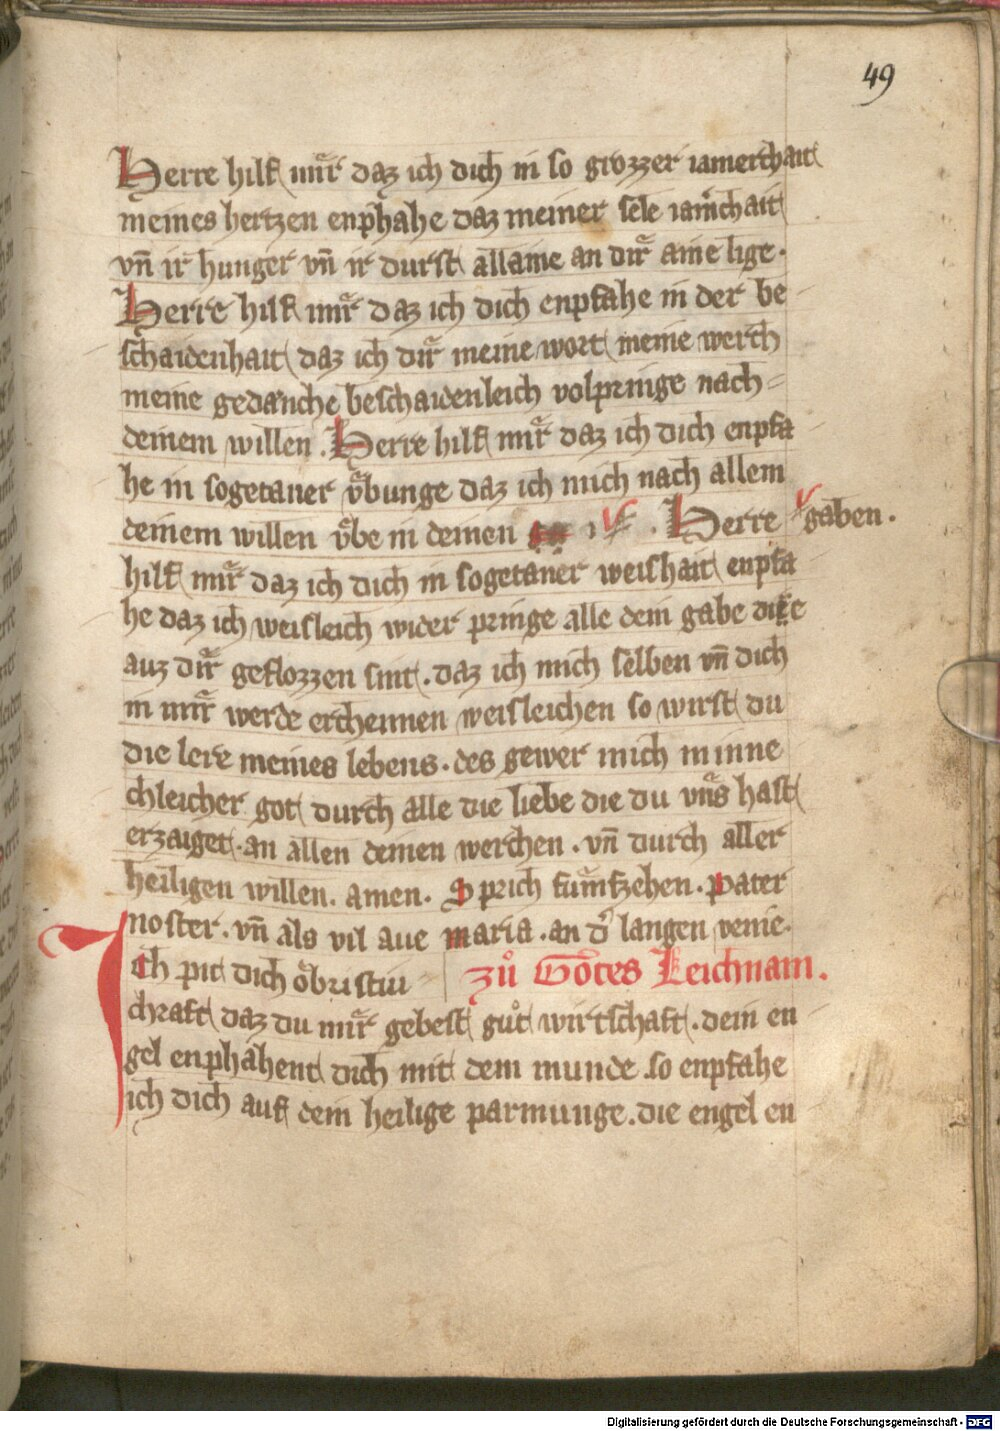 49
Herre hilf mir daz ich dich in so grozzer iamerchait
meines hertzen enphahe daz meiner sele iamͣchait
vn̄ ir hunger vn̄ ir durst allaine an dir aine lige.
Herre hilf mir daz ich dich enpfahe in der be
schaidenhait daz ich dir meine wort meine werch
meine gedanche beschaidenleich volpringe nach
deinem willen. Herre hilf mir daz ich dich enpfa
he in sogetaner vͤbunge daz ich mich nach allem
deinem willen vͤbe in deinen . Herre gaben.
hilf mir daz ich dich in sogetaner weishait enpfa
he daz ich weisleich wider pringe alle dein gabe die
auz dir geflozzen sint. daz ich mich selben vn̄ dich
in mir werde erchennen weisleichen so wirst du
die lere meines lebens. des gewer mich minne
chleicher got durch alle die liebe die du vns hast
erzaiget. an allen deinen werchen. vn̄ durch aller
heiligen willen. amen. Sprich fumfzehen. Pater
noster. vn̄ als vil aue maria. an dˀ langen venie.
Ich pit dich obristiu zuͦ Gotes Leichnam.
chraft daz du mir gebest guͦt wirtschaft. dein en
gel enphahent dich mit dem munde so enpfahe
ich dich auf dein heilige parmunge. die engel en
Digitalisierung gefördert durch die Deutsche Forschungsgemeinschaft - DFG